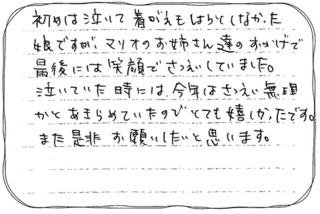 初めは泣いて着がえもはらくしなかった
娘ですが、マリオのお姉さん達のおかげで
最後には笑顔でさつえいしていました。
泣いていた時には、今年はさつえい無理
かとあきらめていたのでとても嬉しかったです。
また是非お願いしたいと思います。